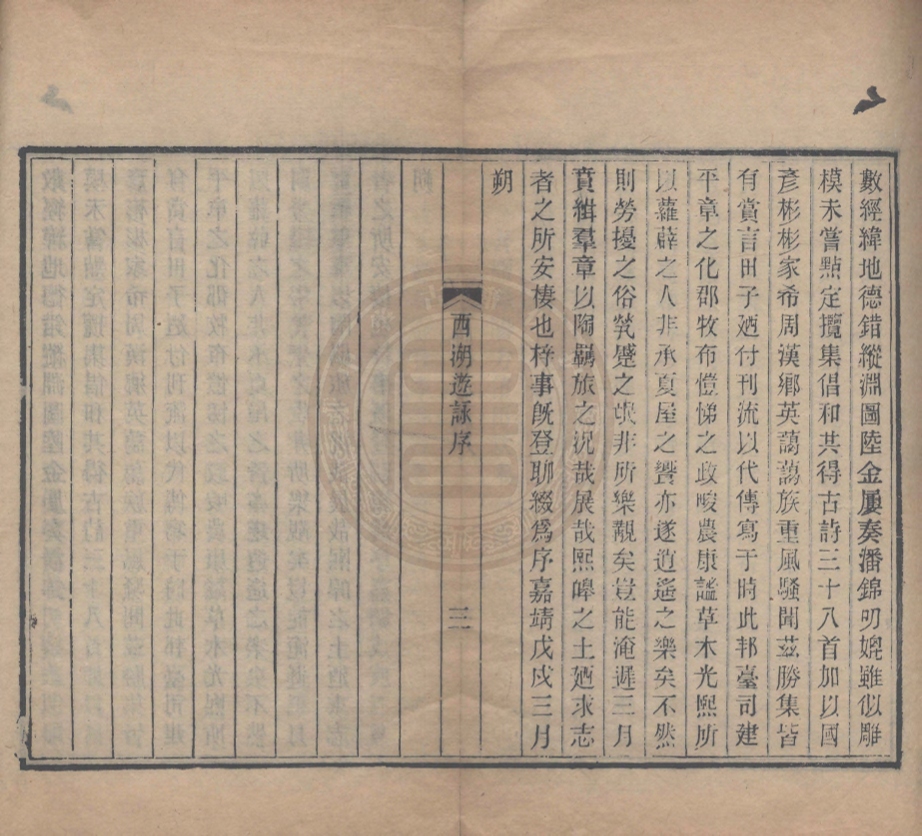 數經緯地德錯縱淵圖陸金屢奏潘錦叨媲雖似雕
模未嘗點定攬集倡和共得古詩三十八首加以國
彥彬彬家希周漢鄉英藹藹族重風騷聞茲勝集皆
有賞言田子廼付刊流以代傳寫于時此邦臺司建
平章之化郡牧布愷悌之政畯農康謐草木光熙所
以蘿薜之人非承夏屋之饗亦遂逍遙之樂矣不然
則勞擾之俗煢蹙之氓非所樂覯矣豈能淹遲三月
賁緝羣章以陶羈旅之況哉展哉熙皞之土廼求志
者之所安棲也梓事旣登聊綴爲序嘉靖戊戌三月
朔
西湖遊詠序
三